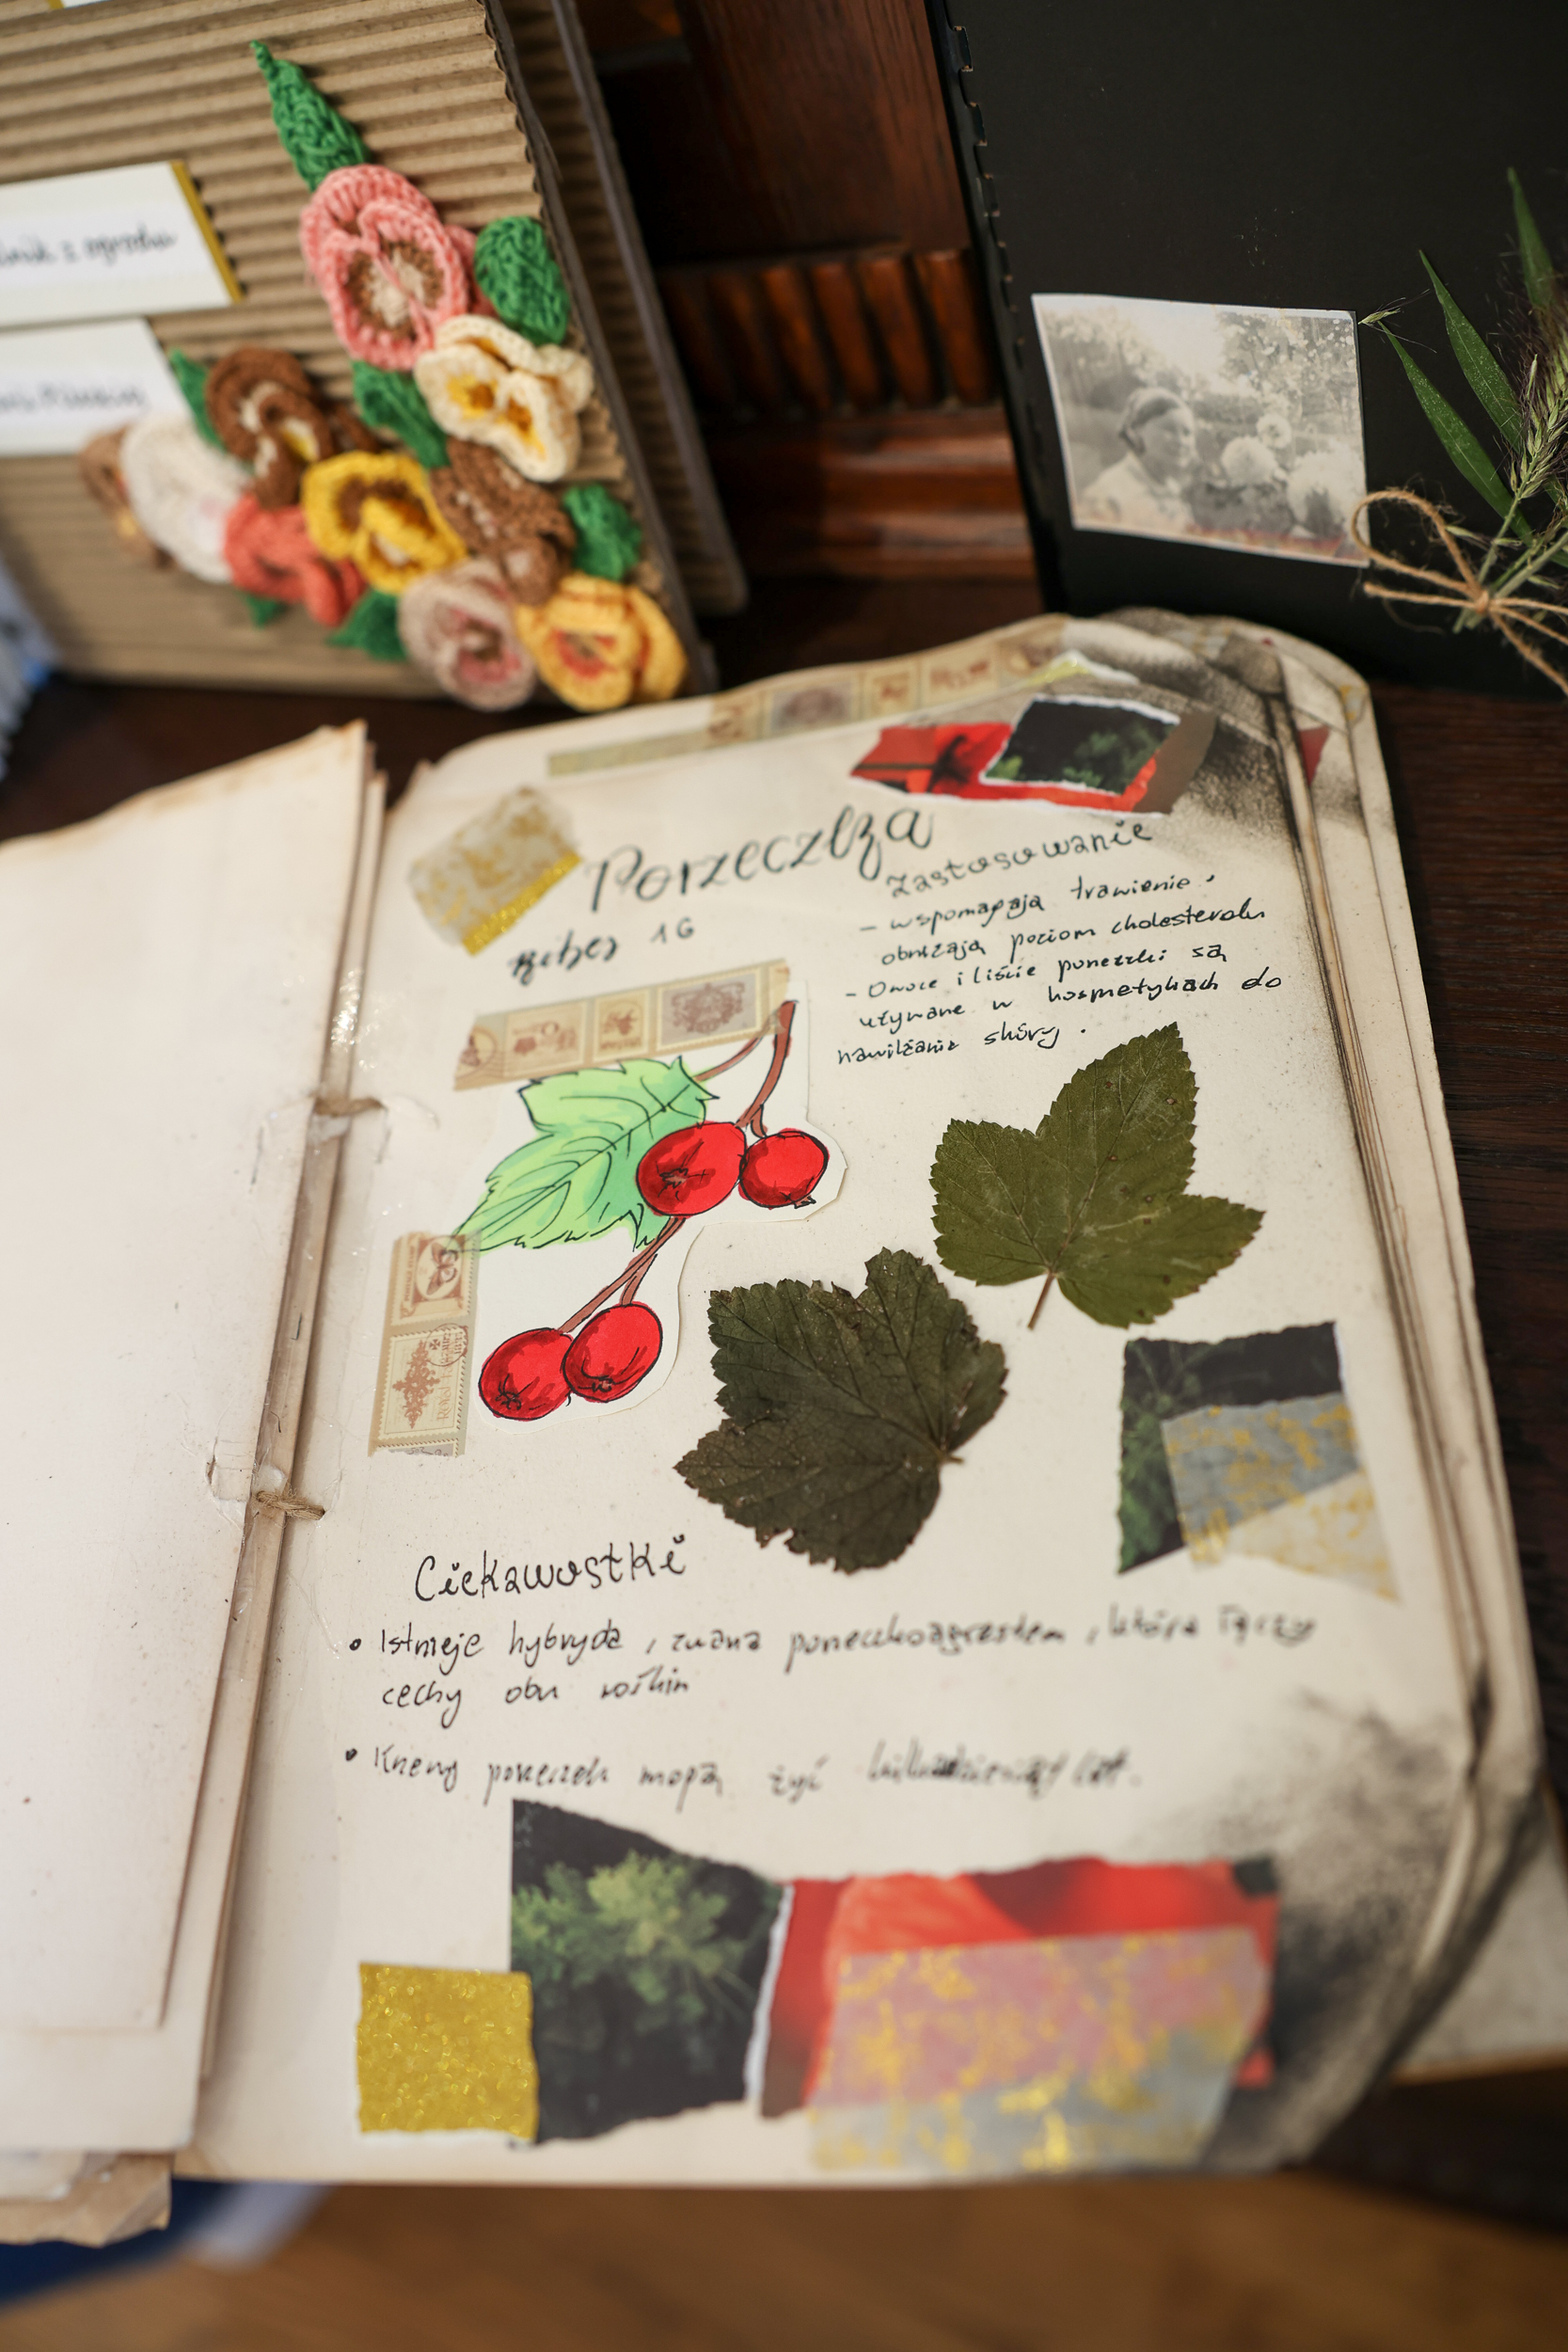 z ogrodu
Porzeczka
ribes 1G
Zastosowanie
- wspomagają trawienie,
obniżają poziom cholesterolu
- Owoce i liście porzeczki są
używane w kosmetykach do
nawilżania skóry.
Ciekawostki
• Istnieje hybryda, zwana porzeczkoagrestem, która łączy
cechy obu roślin
• Krzewy porzeczek mogą żyć kilkadziesiąt lat.